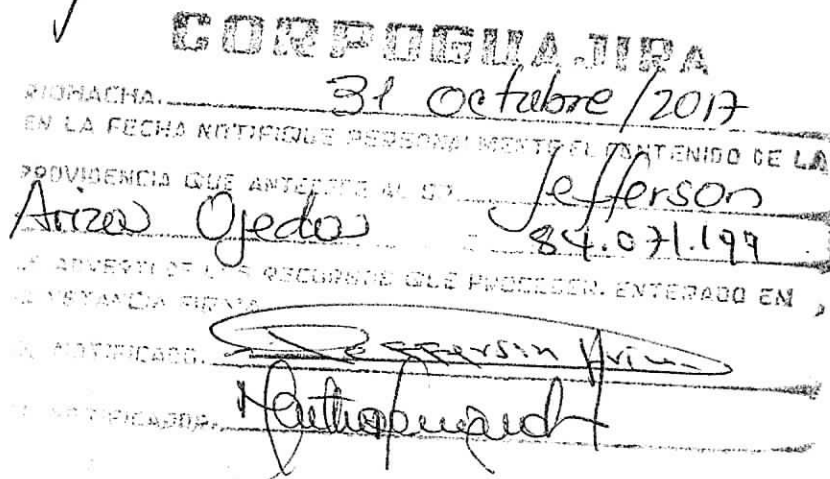 CORPOGUAJIRA
RIOHACHA. 31 Octubre/2017
EN LA FECHA NOTIFIQUE PERSONALMENTE EL CONTENIDO DE LA
PROVIDENCIA QUE ANTECEDE AL SR. Jefferson
Ariza Ojeda 84.071.199
LE ADVERTI DE LOS RECURSOS QUE PROCEDEN. ENTERADO EN
CONSTANCIA FIRMA
EL NOTIFICADO. Jefferson Ariza
EL NOTIFICADOR.